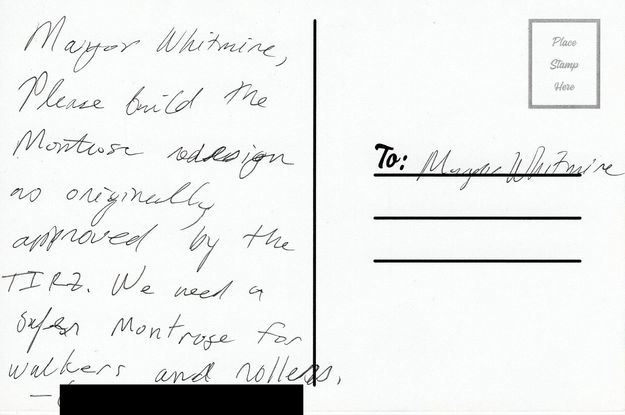 Mayor Whitmire,
Please build the
Montrose redesign
as originally
approved by the
TIRZ. We need a
safer Montrose for
walkers and rollers.
-
Place
Stamp
Here
To: Mayor Whitmire